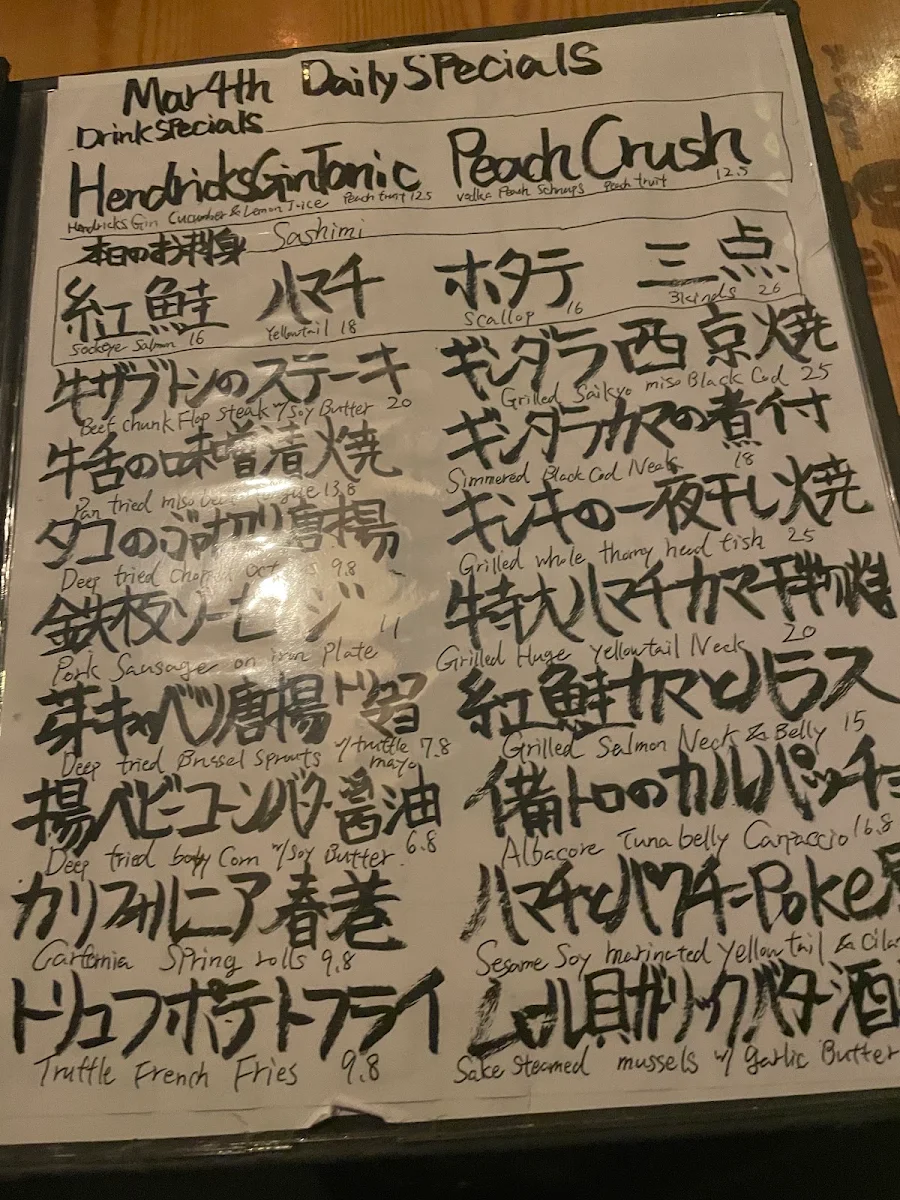 Mar 4th Daily Specials
Drink Specials
Hendricks Gin Tonic
Hendricks Gin Cucumber & Lemon Juice 12.5
Peach Crush
vodka Peach Schnaps Peach fruit 12.5
本日のお刺身 Sashimi
紅鮭
Sockeye Salmon 16
ハマチ
Yellowtail 18
ホタテ
Scallop 16
三点
3kinds 26
牛ザブトンのステーキ
Beef chunk Flap steak w/ Soy Butter 20
牛舌の味噌漬焼
Pan fried miso 13.8
タコのぶつ切り唐揚
Deep fried 9.8
鉄板ソーセージ
Pork Sausage on iron Plate 11
芽キャベツ唐揚トリュフ
Deep fried Brussel Sprouts w/ truffle mayo 7.8
揚ベビーコーンバター醤油
Deep fried baby Corn w/ Soy Butter 6.8
カリフォルニア春巻
Carifornia Spring rolls 9.8
トリュフポテトフライ
Truffle French Fries 9.8
ギンダラ西京焼
Grilled Saikyo miso Black Cod 25
ギンダラカマの煮付
Simmered Black Cod Neck 18
キンキの一夜干し焼
Grilled whole thorny head fish 25
特大ハマチカマ干物焼
Grilled Huge Yellowtail Neck 20
紅鮭カマとハラス
Grilled Salmon Neck & Belly 15
備トロのカルパッチョ
Albacore Tuna belly Carpaccio 16.8
ハマチとパクチーPoke
Sesame Soy marinated Yellowtail &
ムール貝ガーリックバター酒
Sake Steamed mussels w/ garlic Butter